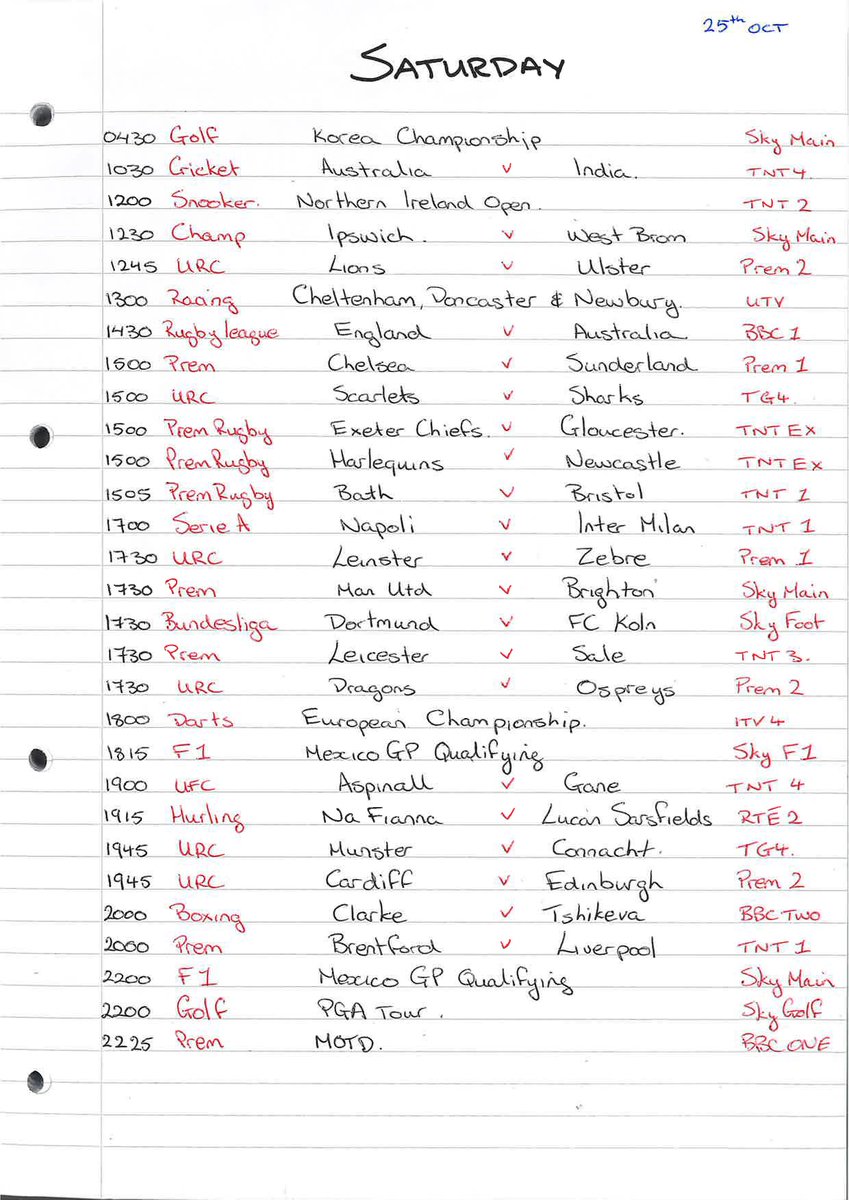 25th OCT
SATURDAY
0430 Golf Korea Championship Sky Main
1030 Cricket Australia v India. TNT 4.
1200 Snooker. Northern Ireland Open. TNT 2
1230 Champ Ipswich. v West Brom Sky Main
1245 URC Lions v Ulster Prem 2
1300 Racing Cheltenham, Doncaster & Newbury. UTV
1430 Rugby league England v Australia. BBC 1
1500 Prem Chelsea v Sunderland Prem 1
1500 URC Scarlets v Sharks TG4.
1500 Prem Rugby Exeter Chiefs. v Gloucester. TNT EX
1500 Prem Rugby Harlequins v Newcastle TNT EX
1505 Prem Rugby Bath v Bristol TNT 1
1700 Serie A Napoli v Inter Milan TNT 1
1730 URC Leinster v Zebre Prem 1
1730 Prem Man Utd v Brighton Sky Main
1730 Bundesliga Dortmund v FC Koln Sky Foot
1730 Prem Leicester v Sale TNT 3.
1730 URC Dragons v Ospreys Prem 2
1800 Darts European Championship. ITV 4
1815 F1 Mexico GP Qualifying Sky F1
1900 UFC Aspinall v Gane TNT 4
1915 Hurling Na Fianna v Lucan Sarsfields RTÉ 2
1945 URC Munster v Connacht. TG4.
1945 URC Cardiff v Edinburgh Prem 2
2000 Boxing Clarke v Tshikeva BBC TWO
2000 Prem Brentford v Liverpool TNT 1
2200 F1 Mexico GP Qualifying Sky Main
2200 Golf PGA Tour. Sky Golf
2225 Prem MOTD. BBC ONE